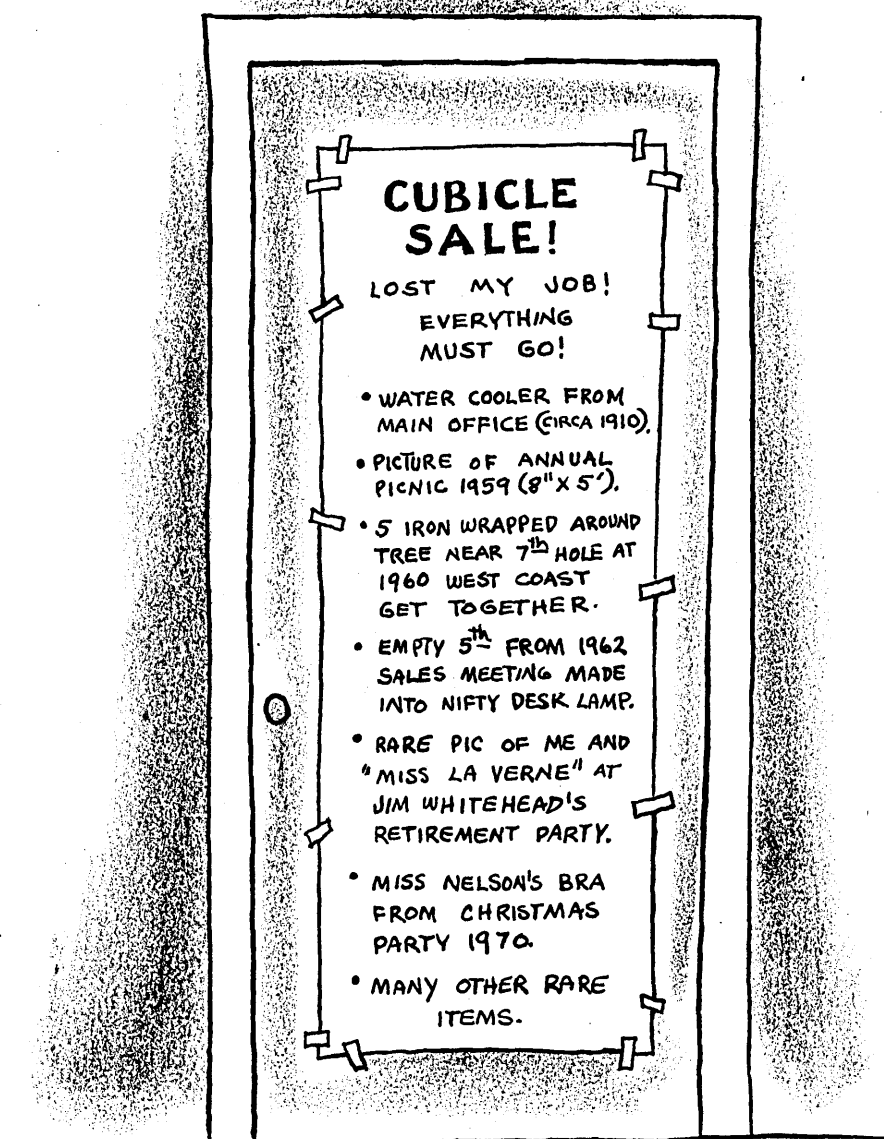 CUBICLE
SALE!
LOST MY JOB!
EVERYTHING
MUST GO!
• WATER COOLER FROM
MAIN OFFICE (CIRCA 1910).
• PICTURE OF ANNUAL
PICNIC 1959 (8" X 5').
• 5 IRON WRAPPED AROUND
TREE NEAR 7th HOLE AT
1960 WEST COAST
GET TOGETHER.
• EMPTY 5th FROM 1962
SALES MEETING MADE
INTO NIFTY DESK LAMP.
• RARE PIC OF ME AND
"MISS LA VERNE" AT
JIM WHITEHEAD'S
RETIREMENT PARTY.
• MISS NELSON'S BRA
FROM CHRISTMAS
PARTY 1970.
• MANY OTHER RARE
ITEMS.